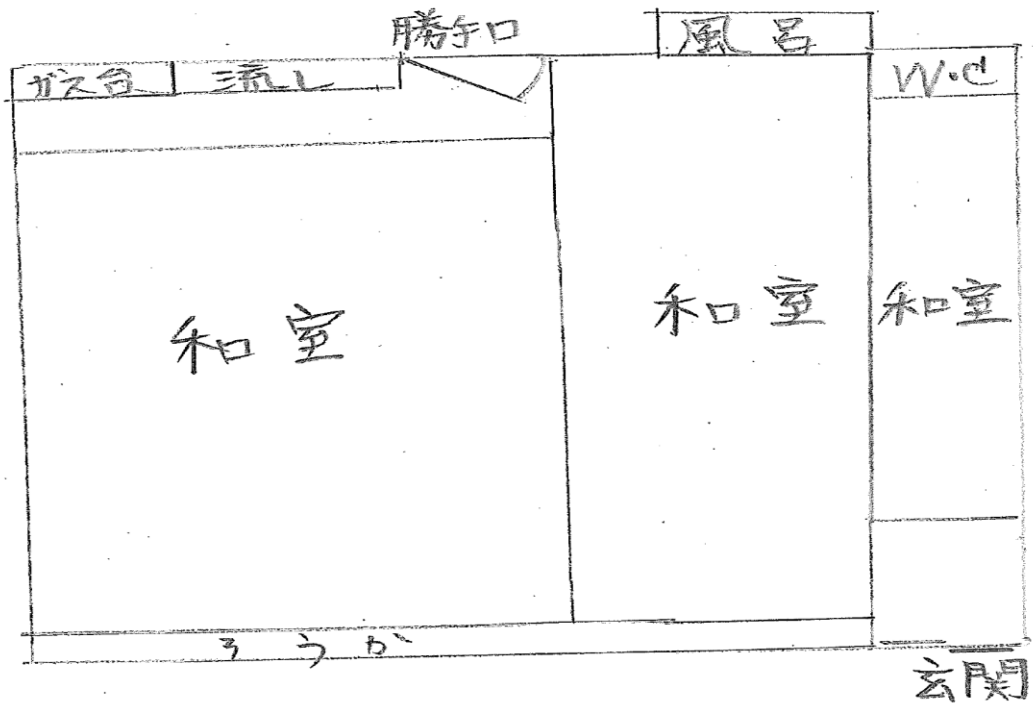 勝手口
風呂
ガス台
流し
W.C
和室
和室
和室
ろうか
玄関